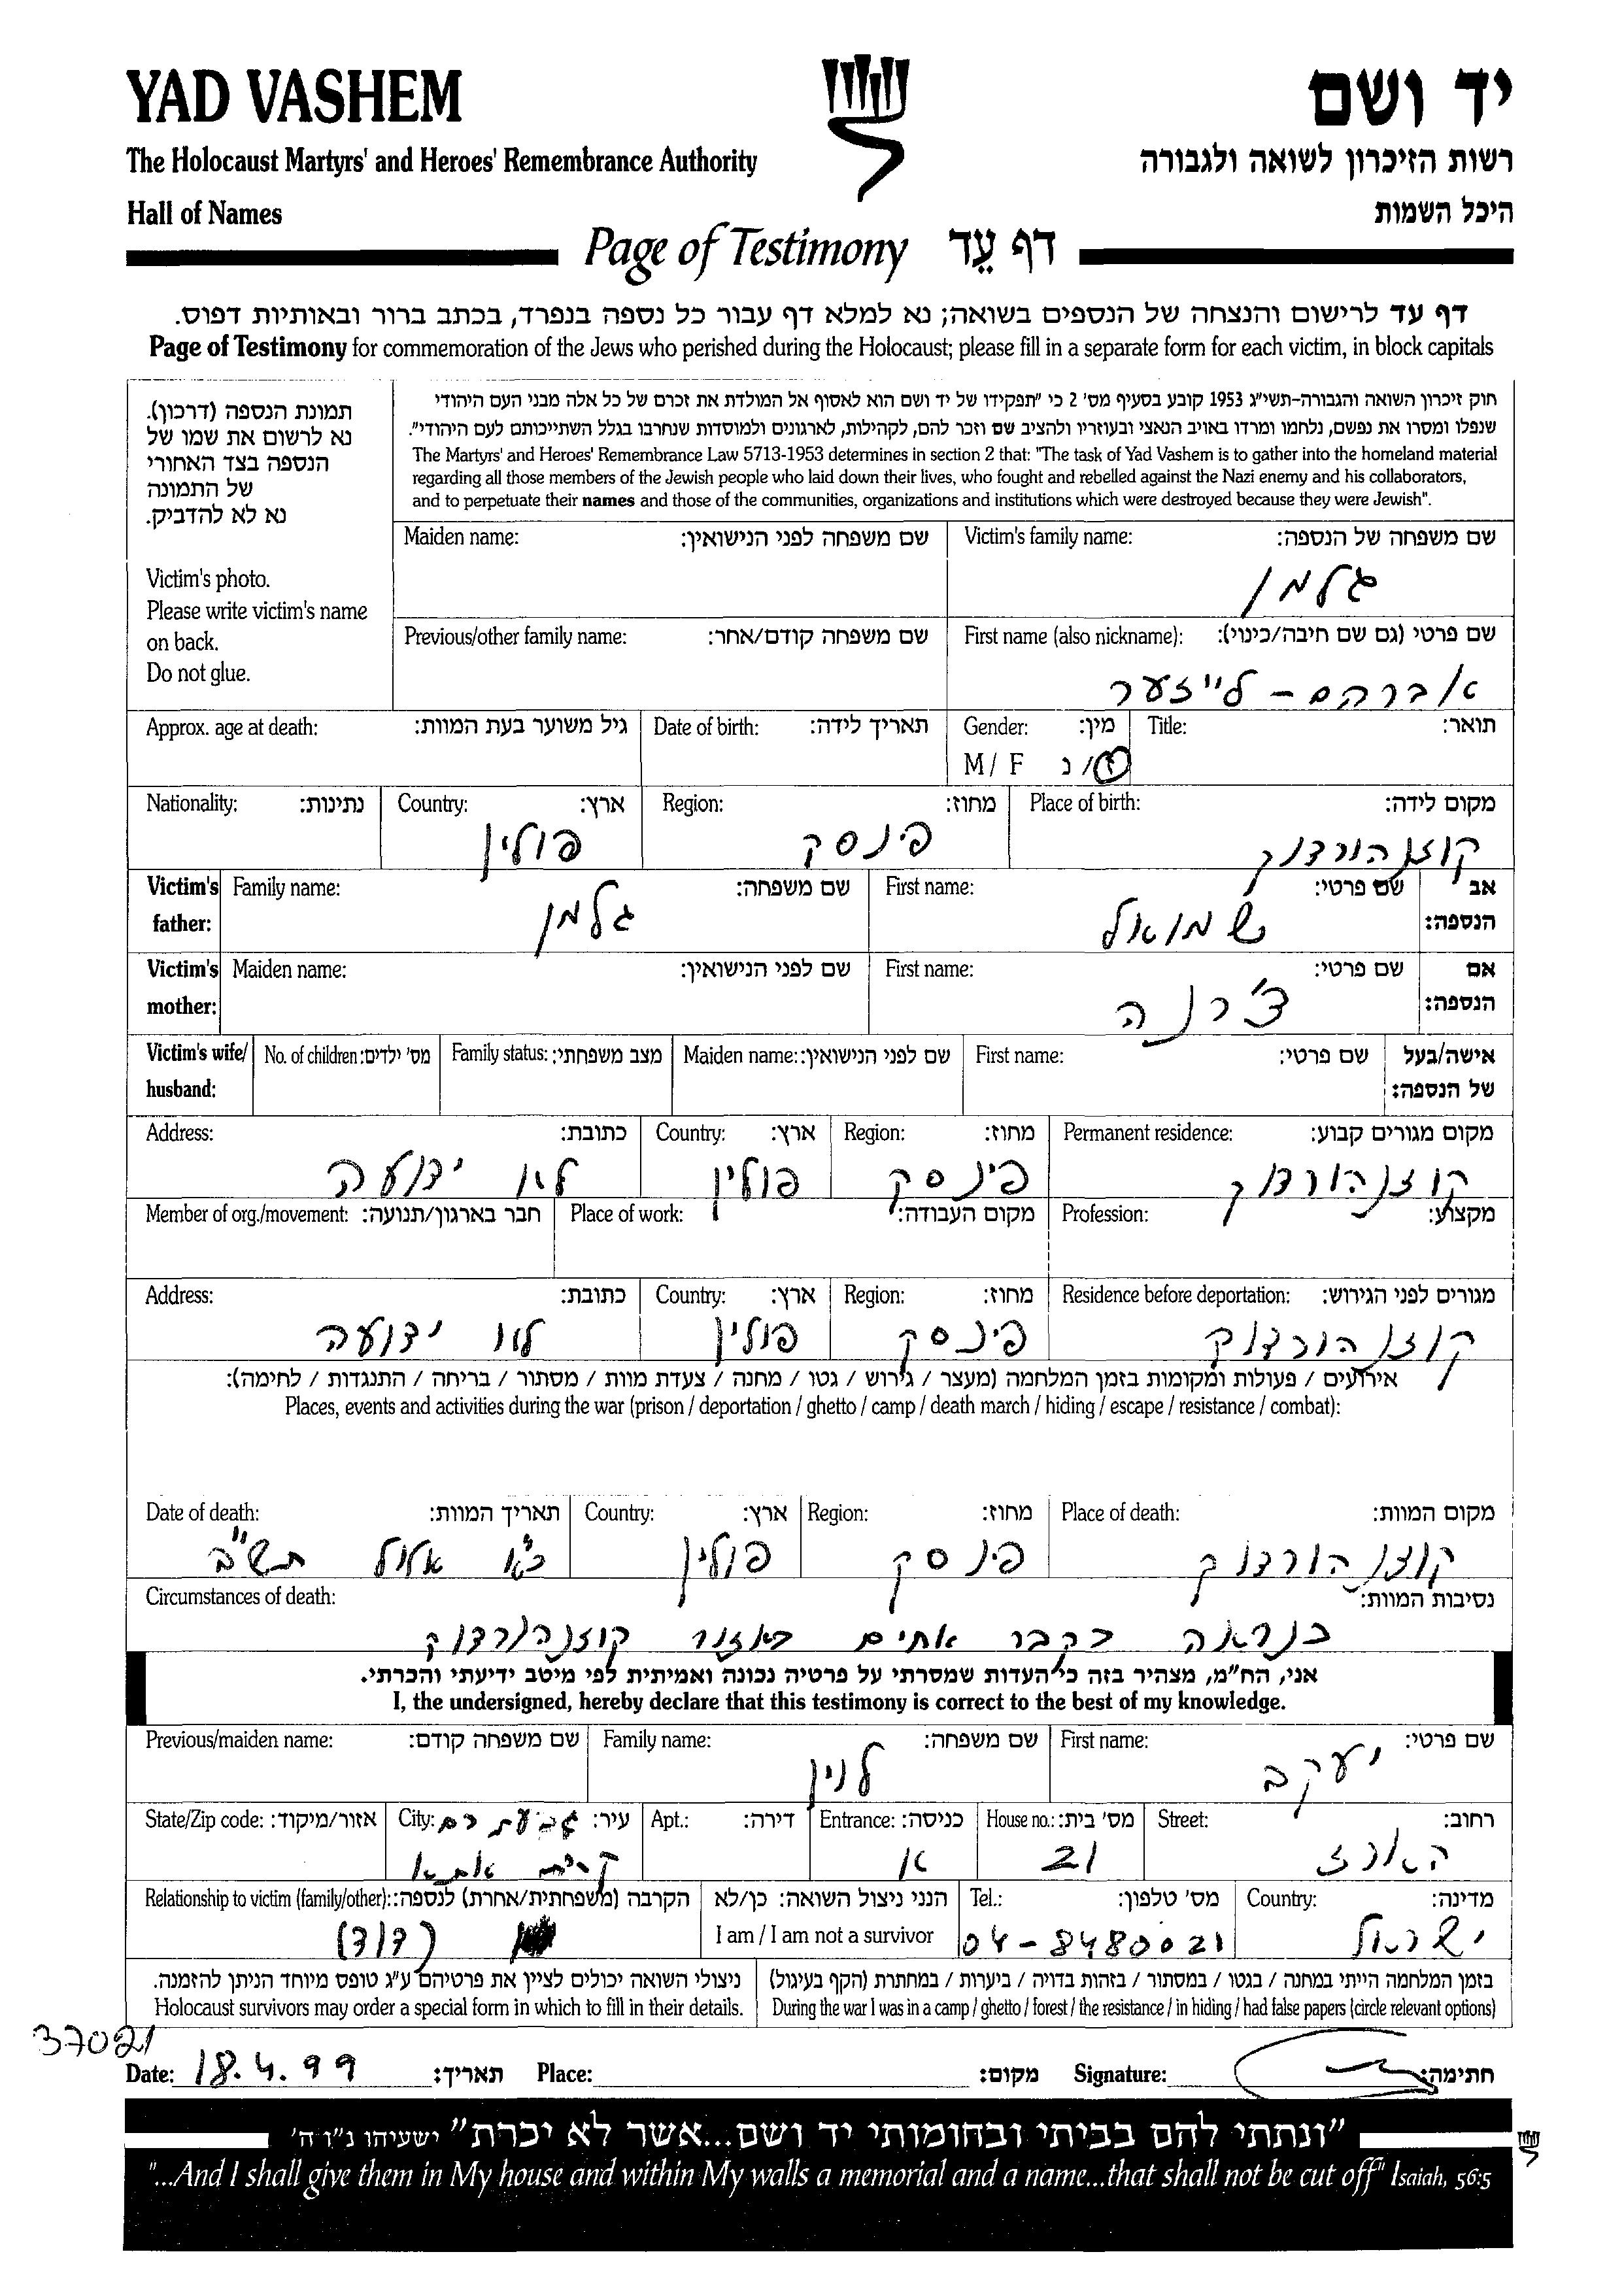 YAD VASHEM
יד ושם
The Holocaust Martyrs' and Heroes' Remembrance Authority
רשות הזיכרון לשואה ולגבורה
Hall of Names
היכל השמות
Page of Testimony דף עֵד
דף עד לרישום והנצחה של הנספים בשואה; נא למלא דף עבור כל נספה בנפרד, בכתב ברור ובאותיות דפוס.
Page of Testimony for commemoration of the Jews who perished during the Holocaust; please fill in a separate form for each victim, in block capitals
חוק זיכרון השואה והגבורה-תשי"ג 1953 קובע בסעיף מס' 2 כי "תפקידו של יד ושם הוא לאסוף אל המולדת את זכרם של כל אלה מבני העם היהודי
שנפלו ומסרו את נפשם, נלחמו ומרדו באויב הנאצי ובעוזריו ולהציב שם וזכר להם, לקהילות, לארגונים ולמוסדות שנחרבו בגלל השתייכותם לעם היהודי".
The Martyrs' and Heroes' Remembrance Law 5713-1953 determines in section 2 that: "The task of Yad Vashem is to gather into the homeland material
regarding all those members of the Jewish people who laid down their lives, who fought and rebelled against the Nazi enemy and his collaborators,
and to perpetuate their names and those of the communities, organizations and institutions which were destroyed because they were Jewish".
תמונת הנספה (דרכון).
נא לרשום את שמו של
הנספה בצד האחורי
של התמונה
נא לא להדביק.
Victim's photo.
Please write victim's name
on back.
Do not glue.
Victim's family name: שם משפחה של הנספה:
גלמן
Maiden name: שם משפחה לפני הנישואין:
First name (also nickname): שם פרטי (גם שם חיבה/כינוי):
אברהם - לייזער
Previous/other family name: שם משפחה קודם/אחר:
Title: תואר:
Gender: מין:
M / F ז/נ
Date of birth: תאריך לידה:
Approx. age at death: גיל משוער בעת המוות:
Place of birth: מקום לידה:
קוזנהורודוק
Region: מחוז:
פינסק
Country: ארץ:
פולין
Nationality: נתינות:
אב הנספה: Victim's father:
First name: שם פרטי:
שמואל
Family name: שם משפחה:
גלמן
אם הנספה: Victim's mother:
First name: שם פרטי:
צ'רנה
Maiden name: שם לפני הנישואין:
אישה/בעל של הנספה: Victim's wife/ husband:
First name: שם פרטי:
Maiden name: שם לפני הנישואין:
Family status: מצב משפחתי:
No. of children: מס' ילדים:
Permanent residence: מקום מגורים קבוע:
קוזנהורודוק
Region: מחוז:
פינסק
Country: ארץ:
פולין
Address: כתובת:
לא ידועה
Profession: מקצוע:
Place of work: מקום העבודה:
Member of org./movement: חבר בארגון/תנועה:
Residence before deportation: מגורים לפני הגירוש:
קוזנהורדוק
Region: מחוז:
פינסק
Country: ארץ:
פולין
Address: כתובת:
לא ידועה
אירועים / פעולות ומקומות בזמן המלחמה (מעצר / גירוש / גטו / מחנה / צעדת מוות / מסתור / בריחה / התנגדות / לחימה):
Places, events and activities during the war (prison / deportation / ghetto / camp / death march / hiding / escape / resistance / combat):
Place of death: מקום המוות:
קוזנהורדוק
Region: מחוז:
פינסק
Country: ארץ:
פולין
Date of death: תאריך המוות:
כ"א אלול תש"ב
Circumstances of death: נסיבות המוות:
כנראה בקבר אחים באזור קוזנהורדוק
אני, הח"מ, מצהיר בזה כי העדות שמסרתי על פרטיה נכונה ואמיתית לפי מיטב ידיעתי והכרתי.
I, the undersigned, hereby declare that this testimony is correct to the best of my knowledge.
First name: שם פרטי:
יעקב
Family name: שם משפחה:
לוין
Previous/maiden name: שם משפחה קודם:
Street: רחוב:
הארז
House no.: מס' בית:
21
Entrance: כניסה:
א
Apt.: דירה:
City: עיר: גבעת רם
קרית אתא
State/Zip code: אזור/מיקוד:
Country: מדינה:
ישראל
Tel.: מס' טלפון:
04-8480021
הנני ניצול השואה: כן/לא
I am / I am not a survivor
Relationship to victim (family/other): הקרבה (משפחתית/אחרת) לנספה:
(דוד)
בזמן המלחמה הייתי במחנה / בגטו / במסתור / בזהות בדויה / ביערות / במחתרת (הקף בעיגול)
During the war I was in a camp / ghetto / forest / the resistance / in hiding / had false papers (circle relevant options)
ניצולי השואה יכולים לציין את פרטיהם ע"ג טופס מיוחד הניתן להזמנה.
Holocaust survivors may order a special form in which to fill in their details.
37021
Date: 18.4.99 תאריך: Place: מקום: Signature: חתימה:
"ונתתי להם בביתי ובחומותי יד ושם...אשר לא יכרת" ישעיהו נ"ו ה'
"...And I shall give them in My house and within My walls a memorial and a name...that shall not be cut off" Isaiah, 56:5